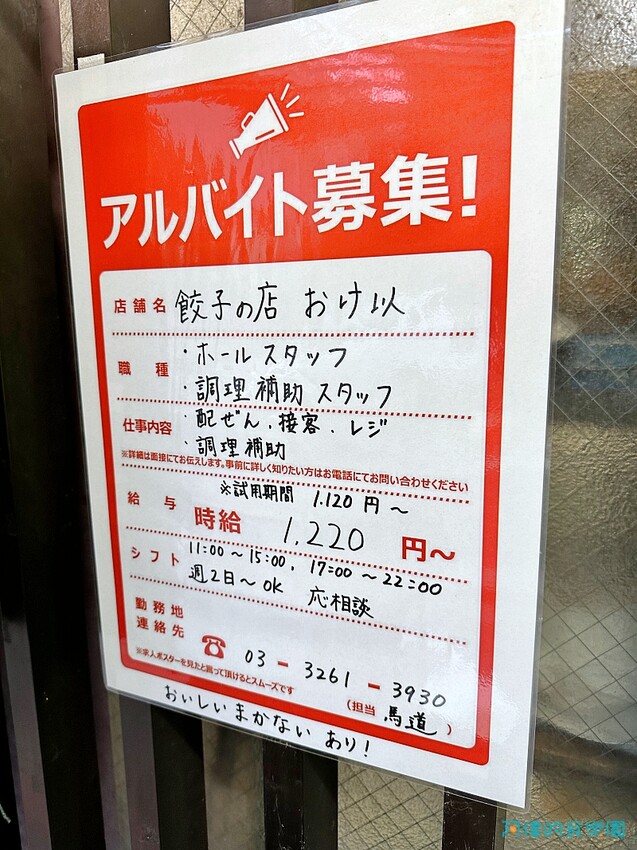 アルバイト募集!
店舗名 餃子の店 おけ以
職種 ・ホールスタッフ
・調理補助スタッフ
仕事内容 ・配ぜん、接客、レジ
・調理補助
※詳細は面接にてお伝えします。事前に詳しく知りたい方はお電話にてお問い合わせください
※試用期間 1.120円～
給与 時給 1,220円～
シフト 11:00～15:00, 17:00～22:00
週2日～OK 応相談
勤務地
連絡先 ☎ 03-3261-3930
※求人ポスターを見たと言って頂けるとスムーズです
(担当 馬道)
おいしいまかない あり!